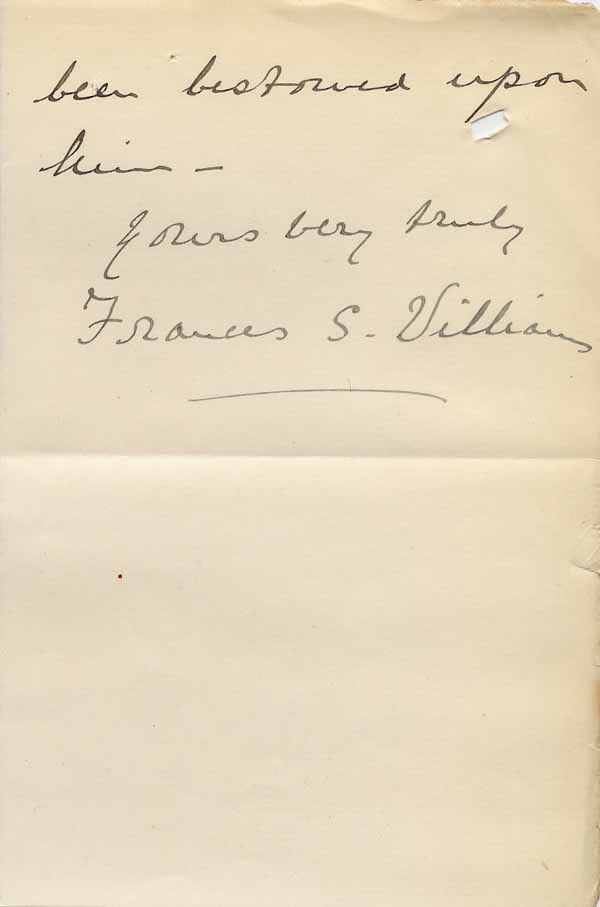 been bestowed upon
him –
Yours very truly
Frances S. Williams